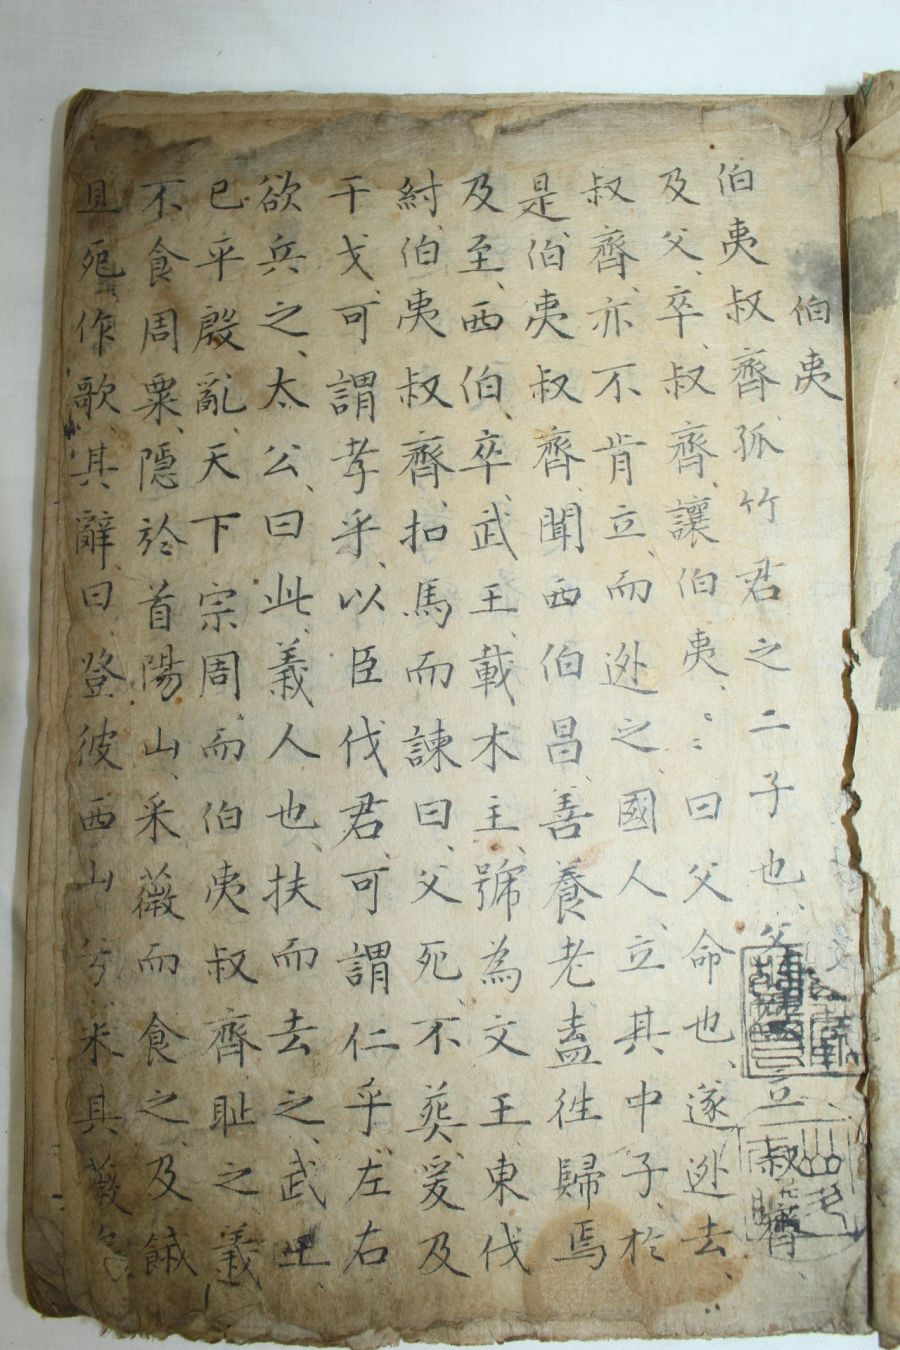 伯夷
伯夷叔齊、孤竹君之二子也、父立叔齊、
及父、卒、叔齊、讓伯夷、〻曰父命也、遂逊去、
叔齊、亦不肯立、而逊之、國人、立其中子、於
是、伯夷叔齊、聞西伯昌、善養老、盍徃歸焉
及至、西伯、卒、武王、載木主、號為文王、東伐
紂、伯夷叔齊、扣馬而諫曰、父死、不葬、爰及
干戈、可謂孝乎、以臣伐君、可謂仁乎、左右
欲兵之、太公、曰此、義人也、扶而去之、武王、
已平殷亂、天下宗周、而伯夷叔齊、耻之、義
不食周粟、隱於首陽山、采薇而食之、及餓
且死、作歌、其辭曰、登彼西山兮、采其薇